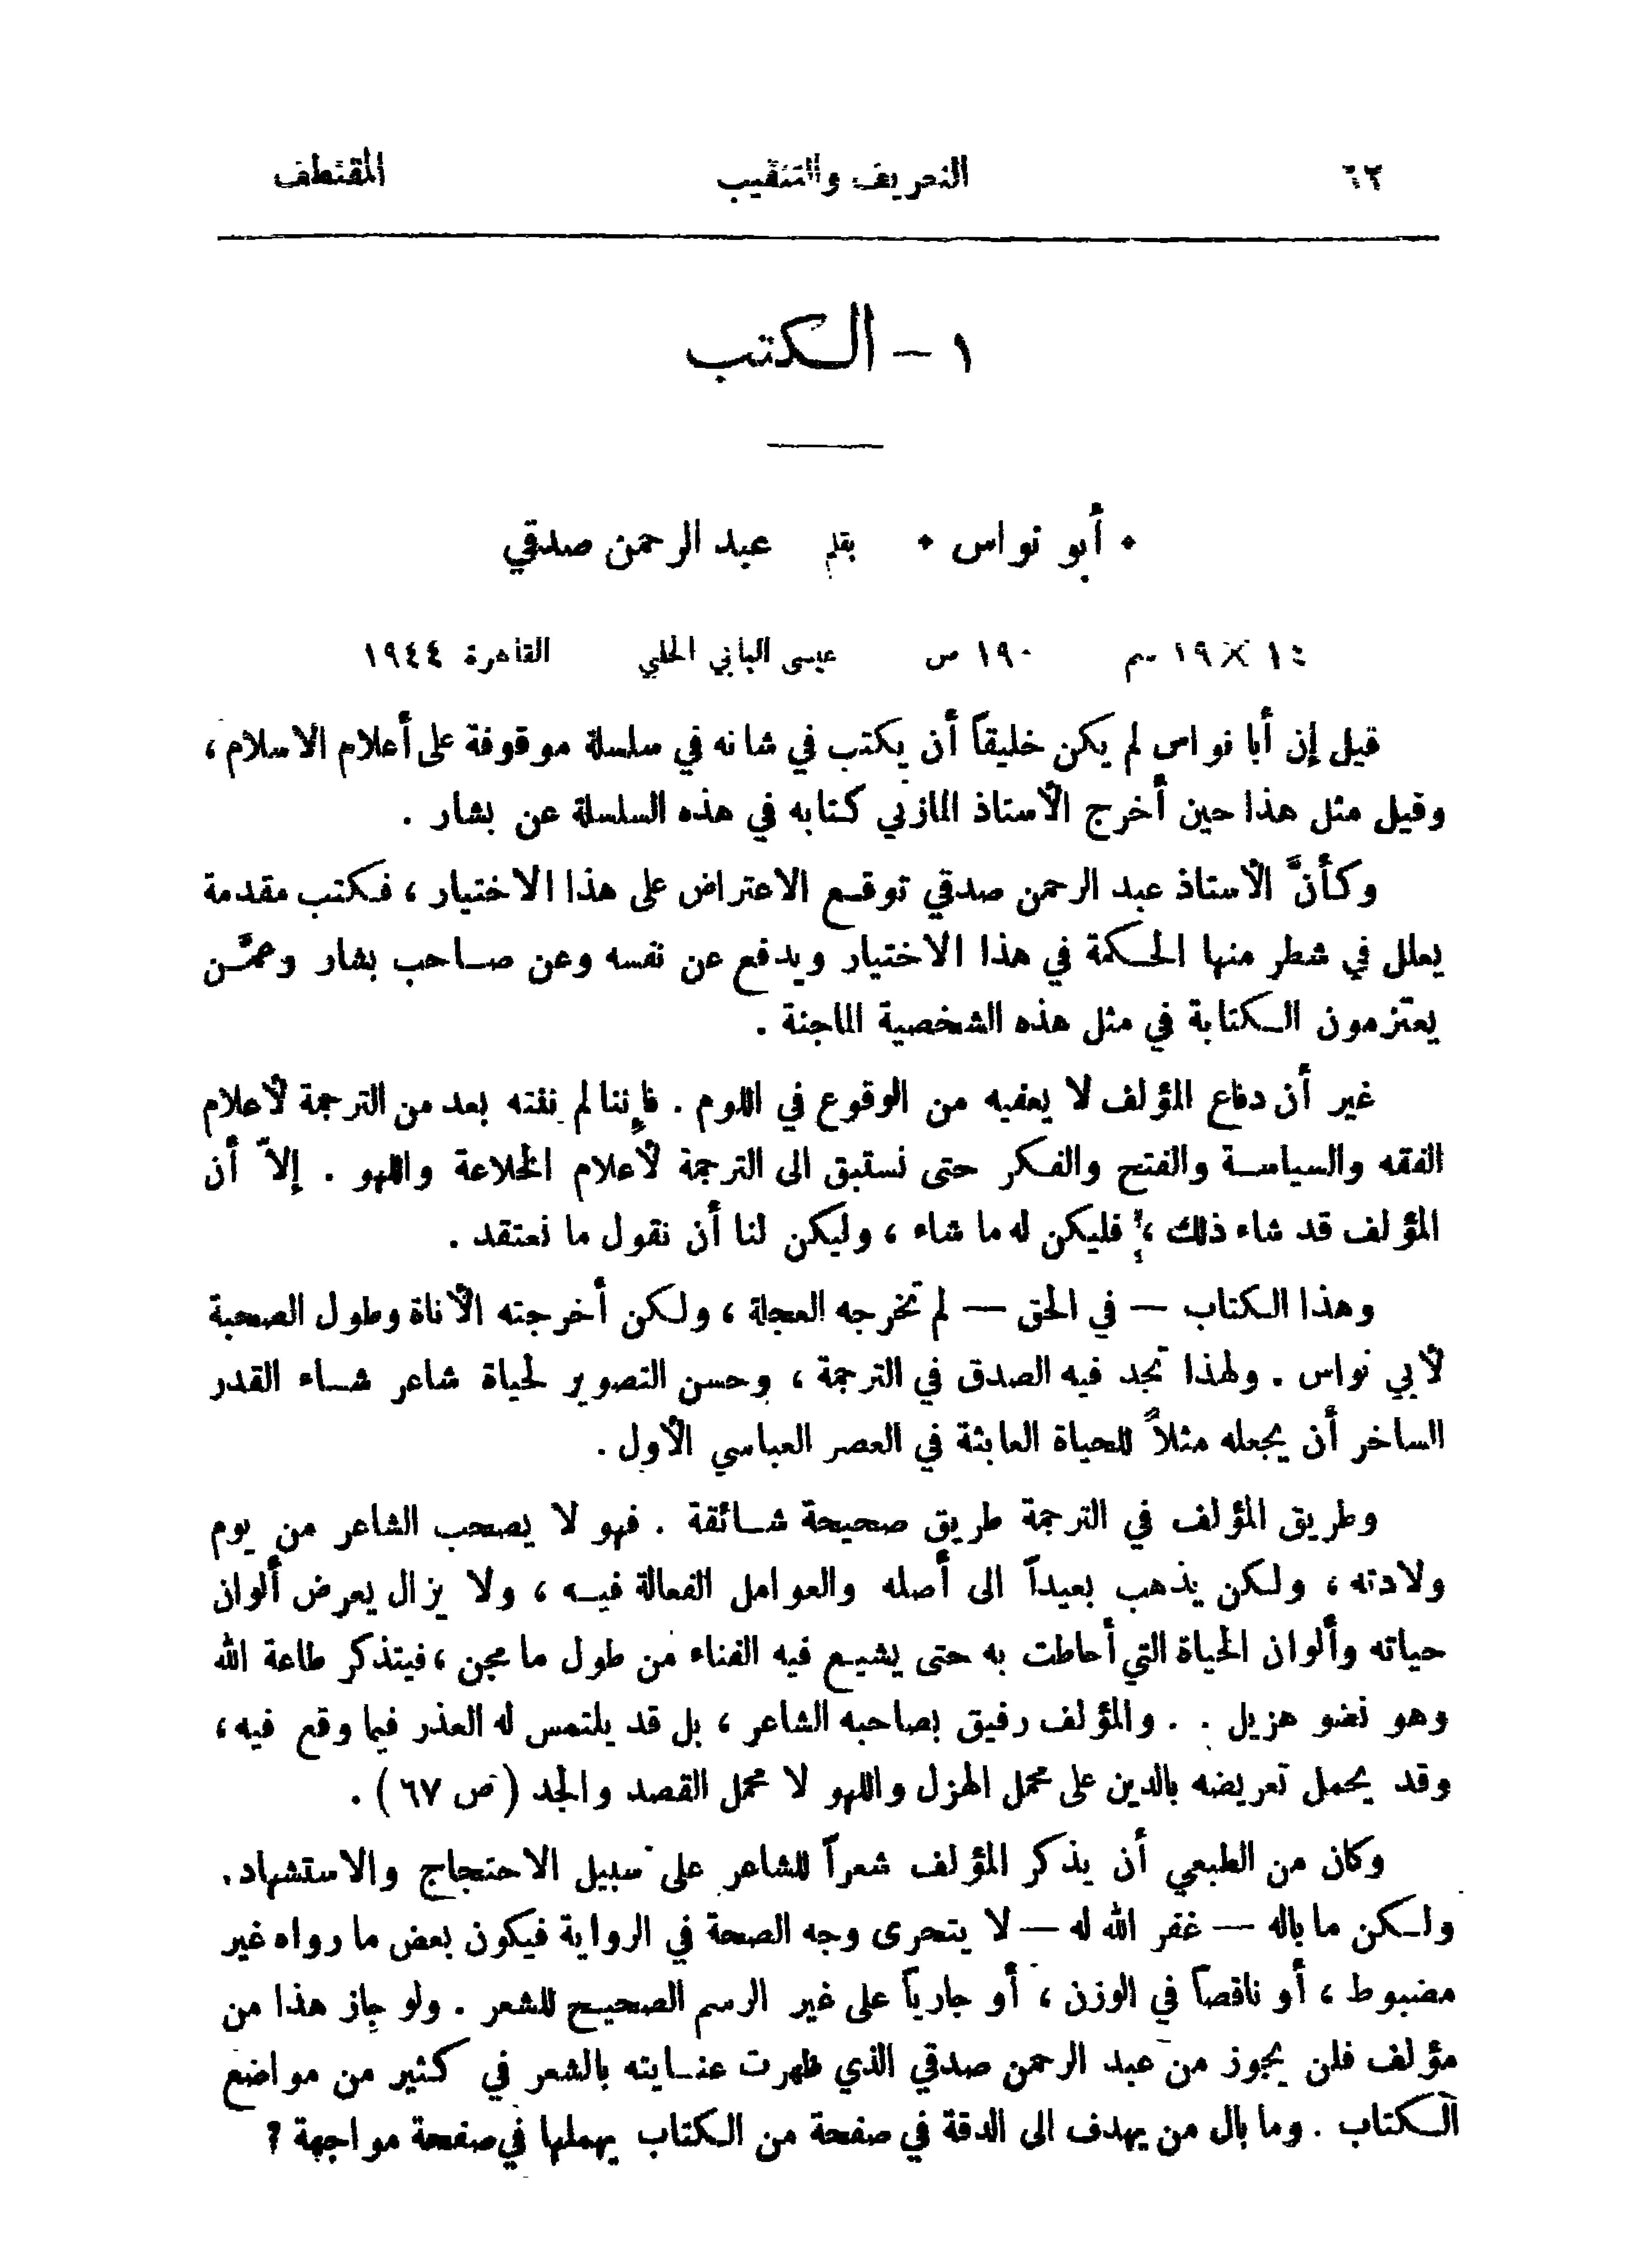 ٦٢ التعريف والتنقيب المقتطف
١ — الكتب
* أبو نواس * بقلم عبد الرحمن صدقي
١٤ × ١٩ سم ١٩٠ ص عيسى البابي الحلبي القاهرة ١٩٤٤
قيل إن أبا نواس لم يكن خليقاً أن يكتب في شانه في سلسلة موقوفة على أعلام الاسلام ،
وقيل مثل هذا حين أخرج الأستاذ المازني كتابه في هذه السلسلة عن بشار .
وكأنَّ الأستاذ عبد الرحمن صدقي توقع الاعتراض على هذا الاختيار ، فكتب مقدمة
يعلل في شطر منها الحكمة في هذا الاختيار ويدفع عن نفسه وعن صاحب بشار وعمَّن
يعتزمون الكتابة في مثل هذه الشخصية الماجنة .
غير أن دفاع المؤلف لا يعفيه من الوقوع في اللوم . فإننا لم ننته بعد من الترجمة لأعلام
الفقه والسياسة والفتح والفكر حتى نستبق الى الترجمة لأعلام الخلاعة واللهو . إلاّ أن
المؤلف قد شاء ذلك ، فليكن له ما شاء ، وليكن لنا أن نقول ما نعتقد .
وهذا الكتاب — في الحق — لم تخرجه العجلة ، ولكن أخرجته الأناة وطول الصحبة
لأبي نواس . ولهذا تجد فيه الصدق في الترجمة ، وحسن التصوير لحياة شاعر شاء القدر
الساخر أن يجعله مثلاً للحياة العابثة في العصر العباسي الأول .
وطريق المؤلف في الترجمة طريق صحيحة شائقة . فهو لا يصحب الشاعر من يوم
ولادته ، ولكن يذهب بعيداً الى أصله والعوامل الفعالة فيه ، ولا يزال يعرض ألوان
حياته وألوان الحياة التي أحاطت به حتى يشيع فيه الفناء من طول ما مجن ، فيتذكر طاعة الله
وهو نضو هزيل . . والمؤلف رفيق بصاحبه الشاعر ، بل قد يلتمس له العذر فيما وقع فيه ،
وقد يحمل تعريضه بالدين على محمل الهزل واللهو لا محمل القصد والجد ( ص ٦٧ ) .
وكان من الطبعي أن يذكر المؤلف شعراً للشاعر على سبيل الاحتجاج والاستشهاد .
ولكن ما باله — غفر الله له — لا يتحرى وجه الصحة في الرواية فيكون بعض ما رواه غير
مضبوط ، أو ناقصاً في الوزن ، أو جارياً على غير الرسم الصحيح للشعر . ولو جاز هذا من
مؤلف فلن يجوز من عبد الرحمن صدقي الذي ظهرت عنايته بالشعر في كثير من مواضع
الكتاب . وما بال من يهدف الى الدقة في صفحة من الكتاب يهملها في صفحة مواجهة ؟